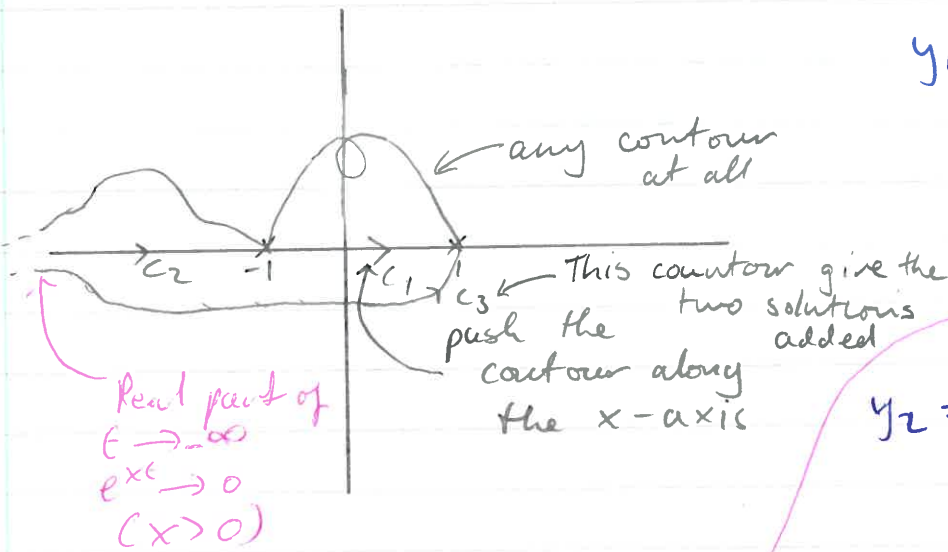 y₁
any contour
at all
C₂
-1
C₁
1
C₃
This countour give the
two solutions
added
push the
contour along
the x-axis
Real part of
t → -∞
eˣᵗ → 0
(x>0)
y₂ =